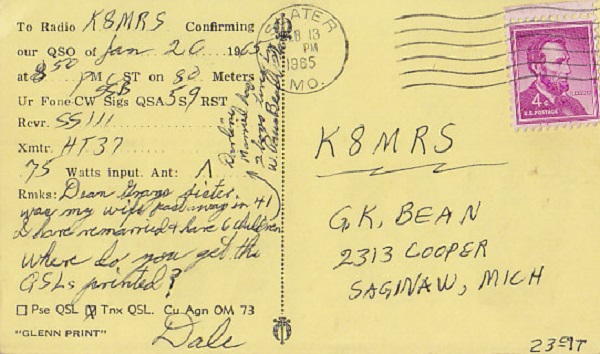 To Radio K8MRS Confirming
our QSO of Jan 20 1965
at 8 50 PM CST on 80 Meters
Ur Fone-CW SSB Sigs QSA 5 9 RST
Rcvr. SS111
Xmtr. HT37
75 Watts input. Ant: Λ
Rmks: Dean Grays sister
was my wife pass away in 41
I have remarried & have 6 children
Where do you get the
QSLs printed?
Pse QSL Tnx QSL. Cu Agn OM 73
"GLENN PRINT" Dale
Darlene
2 boys
SLATER
FEB 13
PM
1965
MO.
4¢
U.S. POSTAGE
K8MRS
G.K. BEAN
2313 COOPER
SAGINAW, MICH